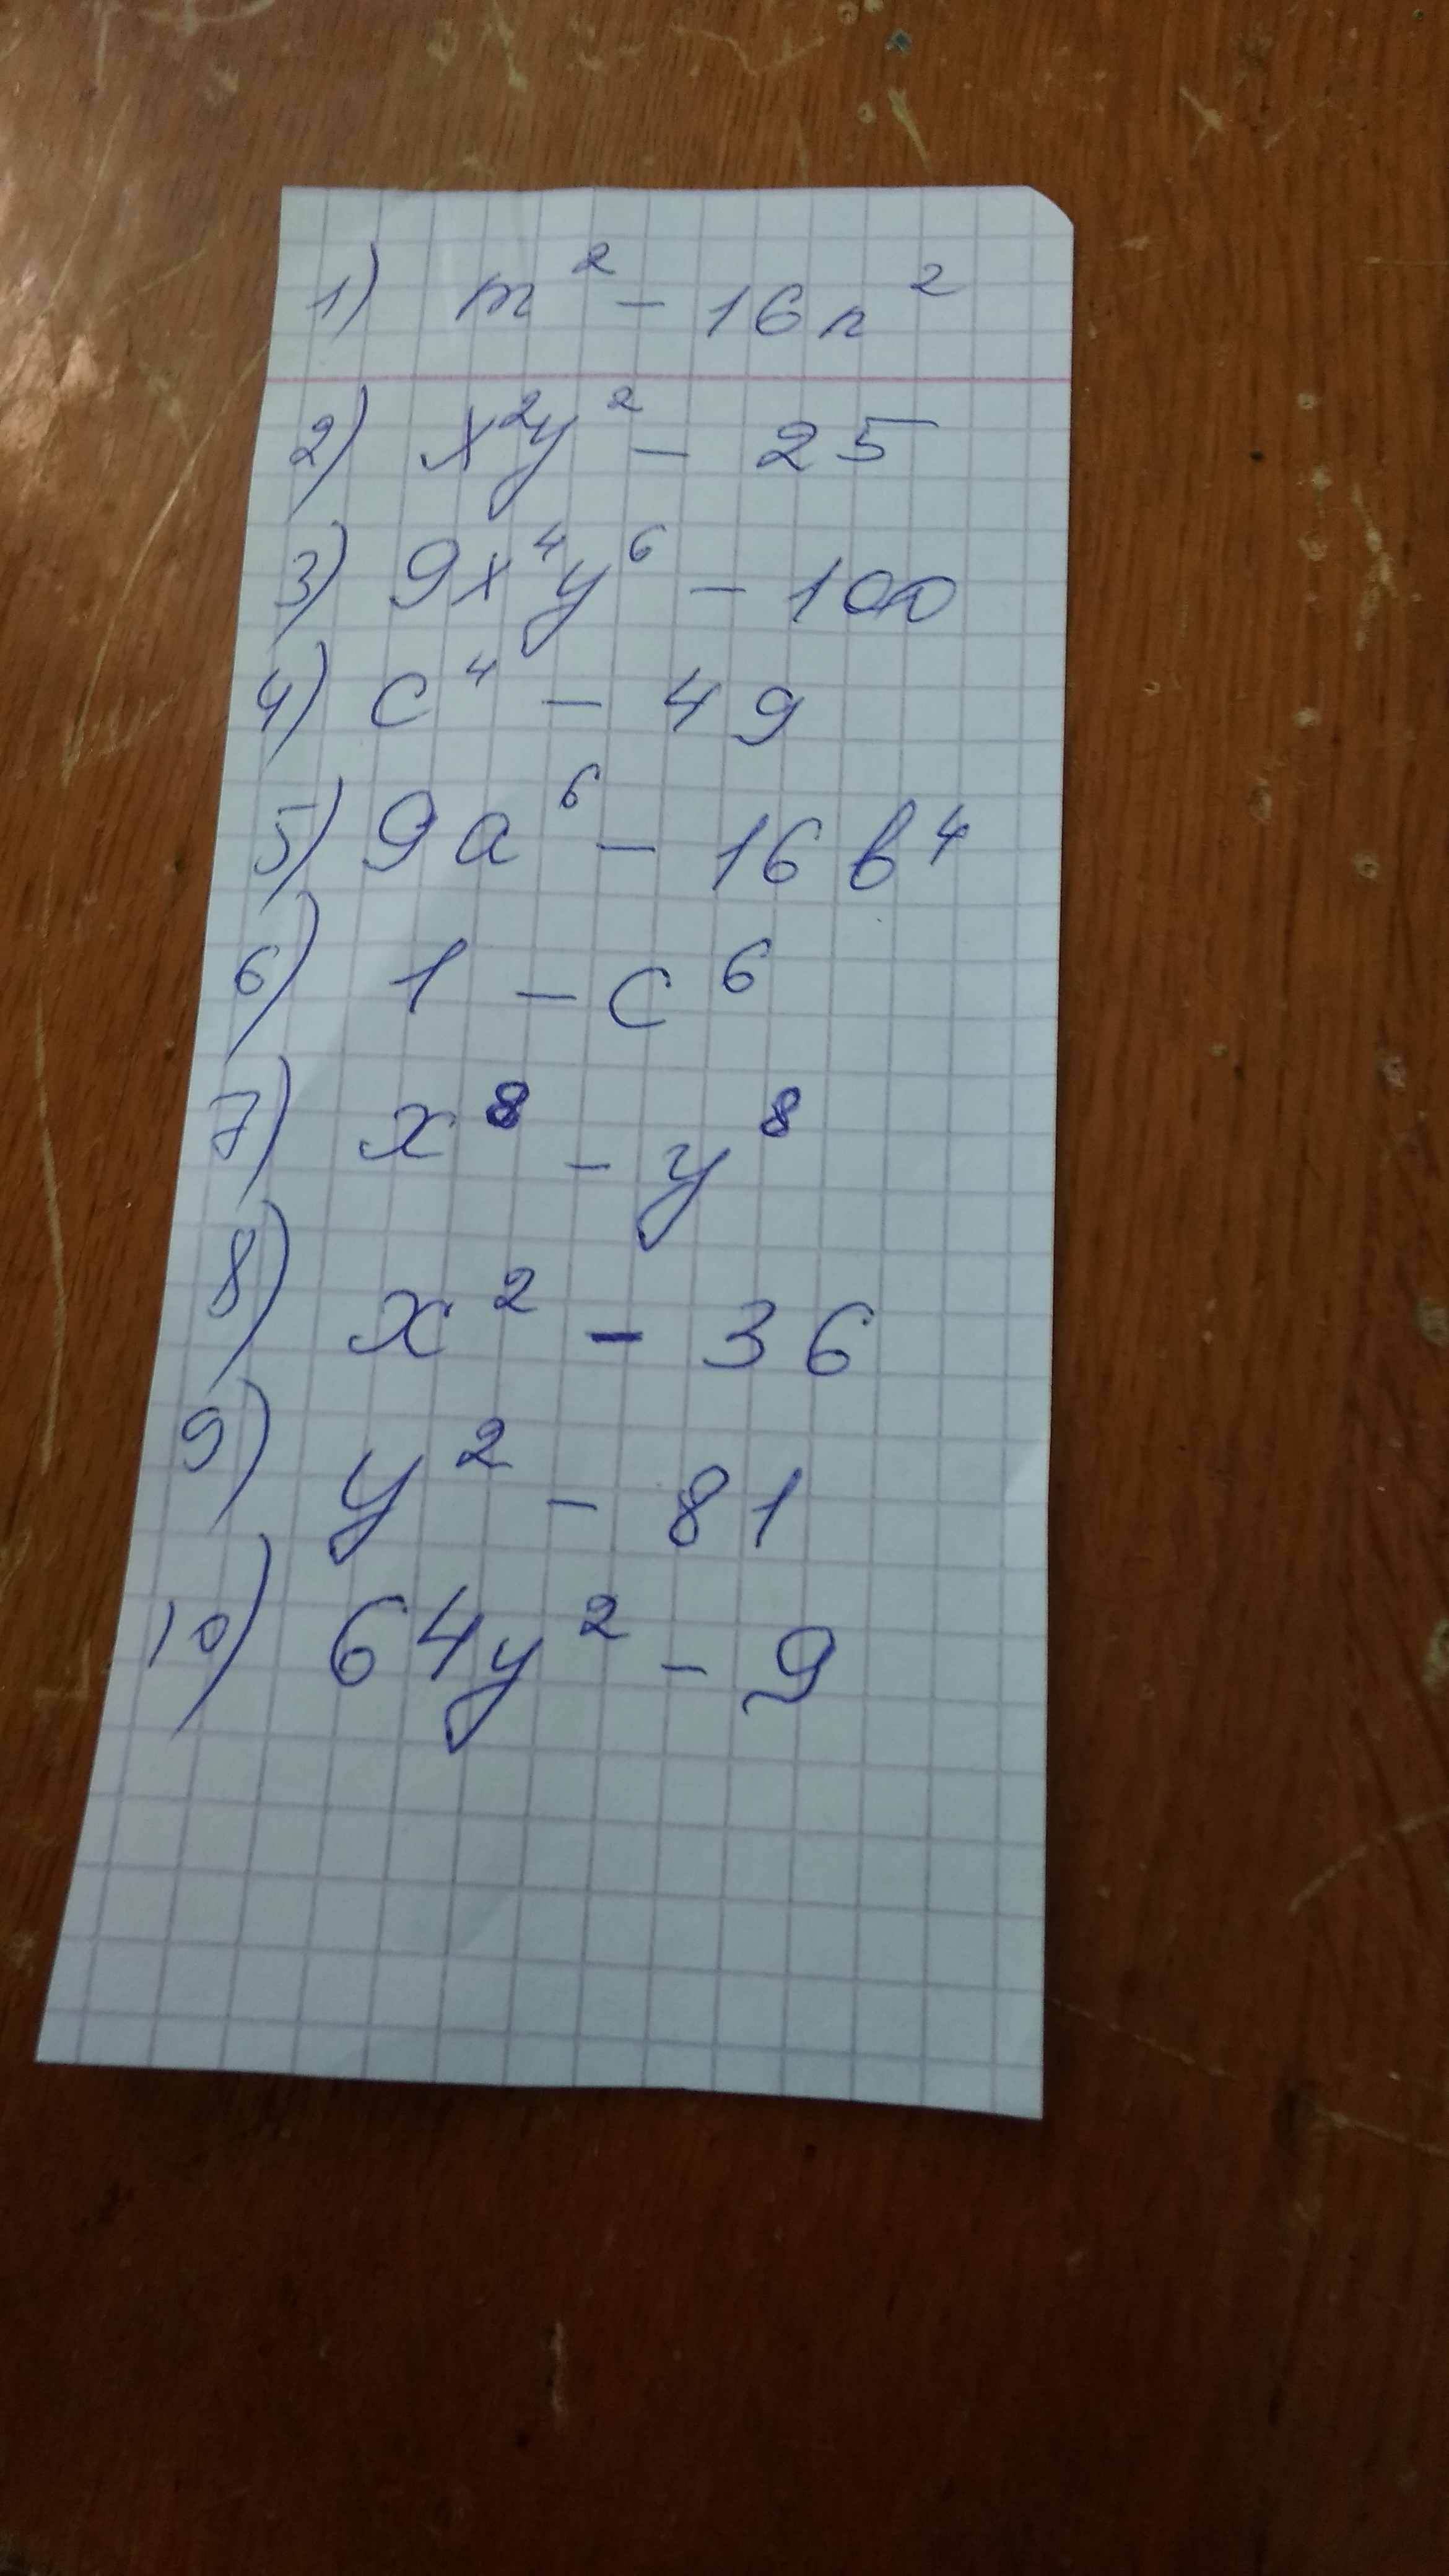 1) m² - 16n²
2) x²y² - 25
3) 9x⁴y⁶ - 100
4) c⁴ - 49
5) 9a⁶ - 16b⁴
6) 1 - c⁶
7) x⁸ - y⁸
8) x² - 36
9) y² - 81
10) 64y² - 9